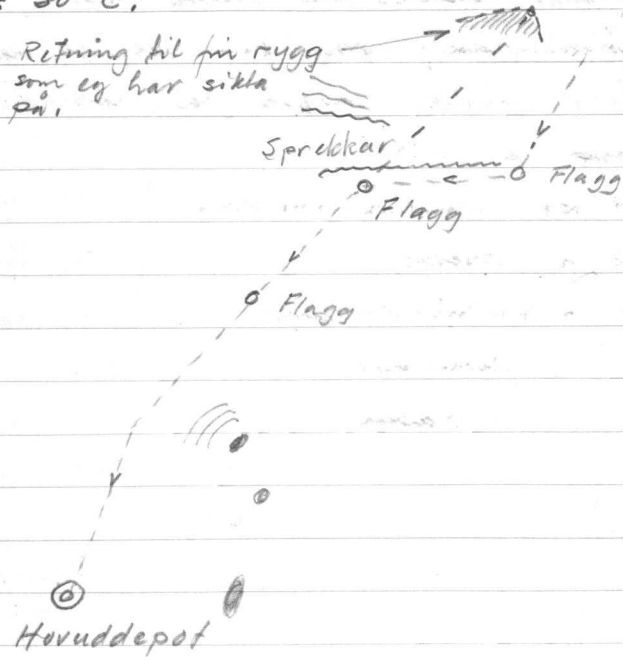 30°C.
Retning til fin rygg
som eg har sikta
på.
Sprekkar
Flagg
Flagg
Flagg
Hovuddepot